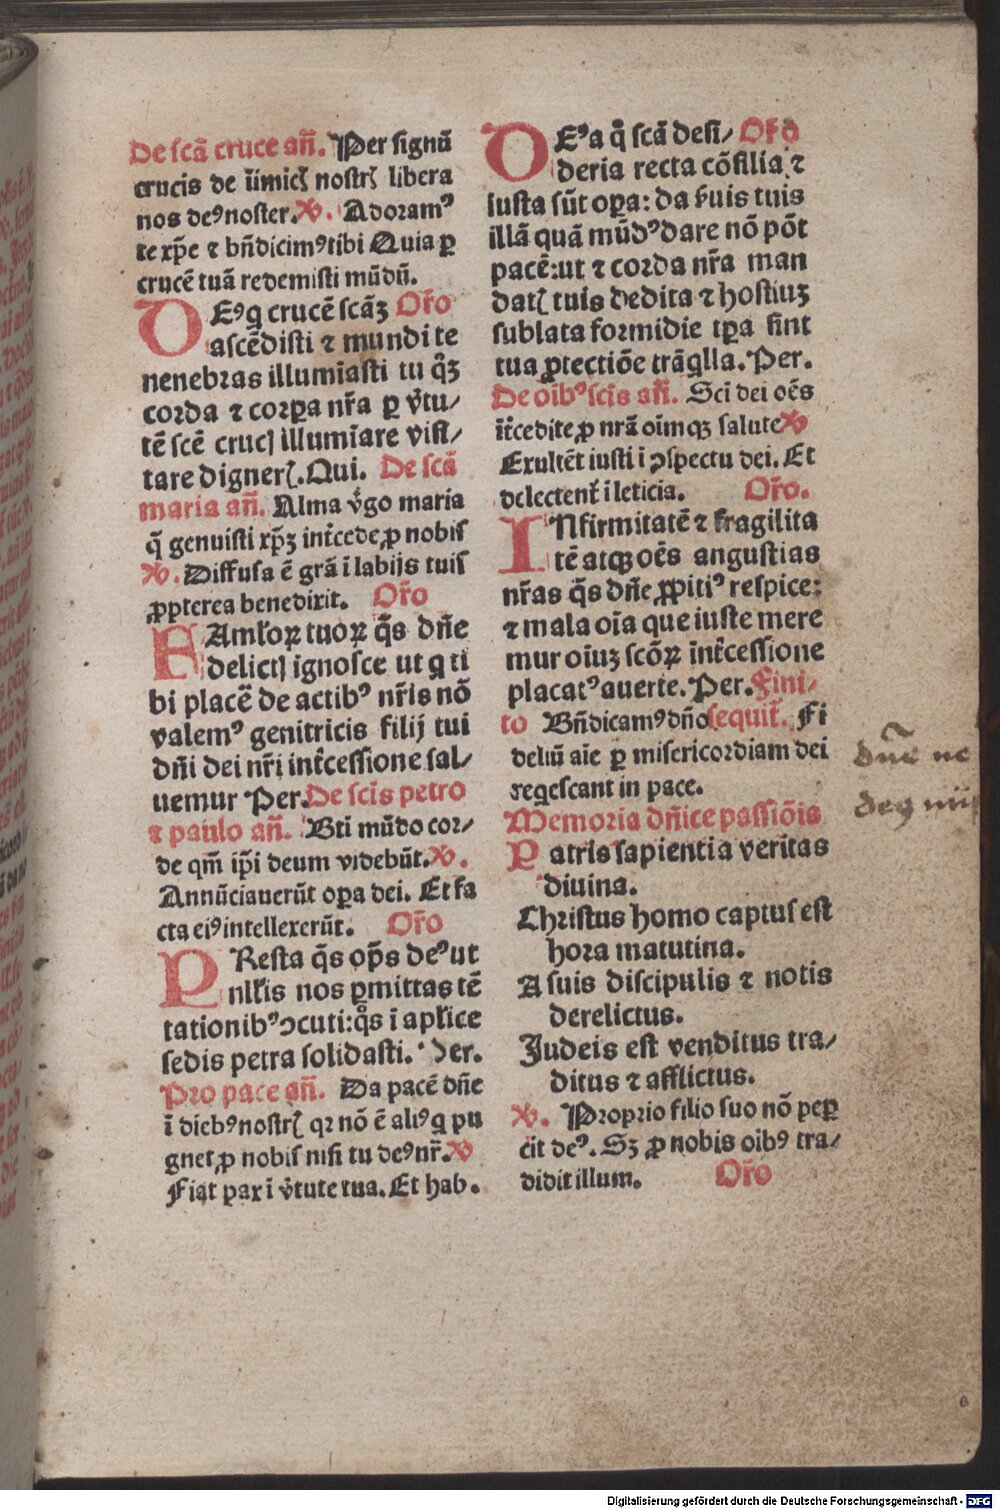 De scā cruce an̄. Per signū
crucis de īimicꝭ nostrꝭ libera
nos deꝰ noster. ℣. Adoramꝰ
te xp̄e ⁊ bn̄dicimꝰ tibi Quia ꝑ
crucē tuā redemisti mūdū.
DEꝰ q̇ crucē scāꝫ Or̄o
ascēdisti ⁊ mundi te
nenebras illumīasti tu q̄ꝫ
corda ⁊ corꝑa nr̄a ꝑ v̓tu/
tē scē crucꝭ illumīare visi/
tare dignerꝭ. Qui. De scā
maria an̄. Alma v̓go maria
q̄ genuisti xp̄ꝫ int̓cede ꝓ nobis
℣. Diffusa ē grā ī labijs tuis
ꝓpterea benedixit. Or̄o
FAml̓oꝝ tuoꝝ q̄s dn̄e
delictꝭ ignosce ut q̇ ti
bi placē̄ de actibꝰ nr̄is nō
valemꝰ genitricis filij tui
dn̄i dei nr̄i int̓cessione sal/
uemur Per. De scīs petro
⁊ paulo an̄. Bti mūdo cor/
de qm̄ ip̄i deum videbūt. ℣.
Annūciauerūt oꝑa dei. Et fa
cta eiꝰ intellexerūt. Or̄o
PResta q̄s op̄s deꝰ ut
nll̓is nos ꝑmittas ꝑtē
tationibꝰ ꝯcuti: q̄s ī apl̓ice
sedis petra solidasti. Per.
Pro pace an̄. Da pacē dn̄e
ī diebꝰ nostrꝭ qꝛ nō ē aliꝰ q̇ pu
gnet ꝓ nobis nisi tu deꝰ nr̄. ℣
Fiat pax ī v̓tute tua. Et hab.
DEꝰ a q̊ scā desi/ Or̄o
deria recta cōsilia ⁊
iusta sūt oꝑa: da s̓uis tuis
illā quā mūdꝰ dare nō pōt
pacē: ut ⁊ corda nr̄a man
datꝭ tuis dedita ⁊ hostiuꝫ
sublata formidie tꝑa sint
tua ꝓtectiōe trāq̇lla. Per.
De oībꝰ scīs an̄. Sci dei oēs
īt̓cedite ꝓ nrā oīmqꝫ salute ℣
Exultēt iusti i ꝯspectu dei. Et
delectent̓ i leticia. Or̄o.
INfirmitatē ⁊ fragilita
tē atqꝫ oēs angustias
nr̄as q̄s dn̄e ꝓpitiꝰ respice:
⁊ mala oīa que iuste mere
mur oīuꝫ scōꝝ īnt̓cessione
placatꝰ auerte. Per. Fini/
to Bn̄dicamꝰ dn̄o sequit̓. Fi
deliū aīe ꝑ misericordiam dei
reqescant in pace.
Memoria dn̄ice passiōis
Patris sapientia veritas
diuina.
Christus homo captus est
hora matutina.
A suis discipulis ⁊ notis
derelictus.
Judeis est venditus tra/
ditus ⁊ afflictus.
℣. Proprio filio suo nō peꝑ
cit deꝰ. Sꝫ ꝓ nobis oībꝰ tra/
didit illum. Or̄o
dn̄e ne
Digitalisierung gefördert durch die Deutsche Forschungsgemeinschaft - DFG